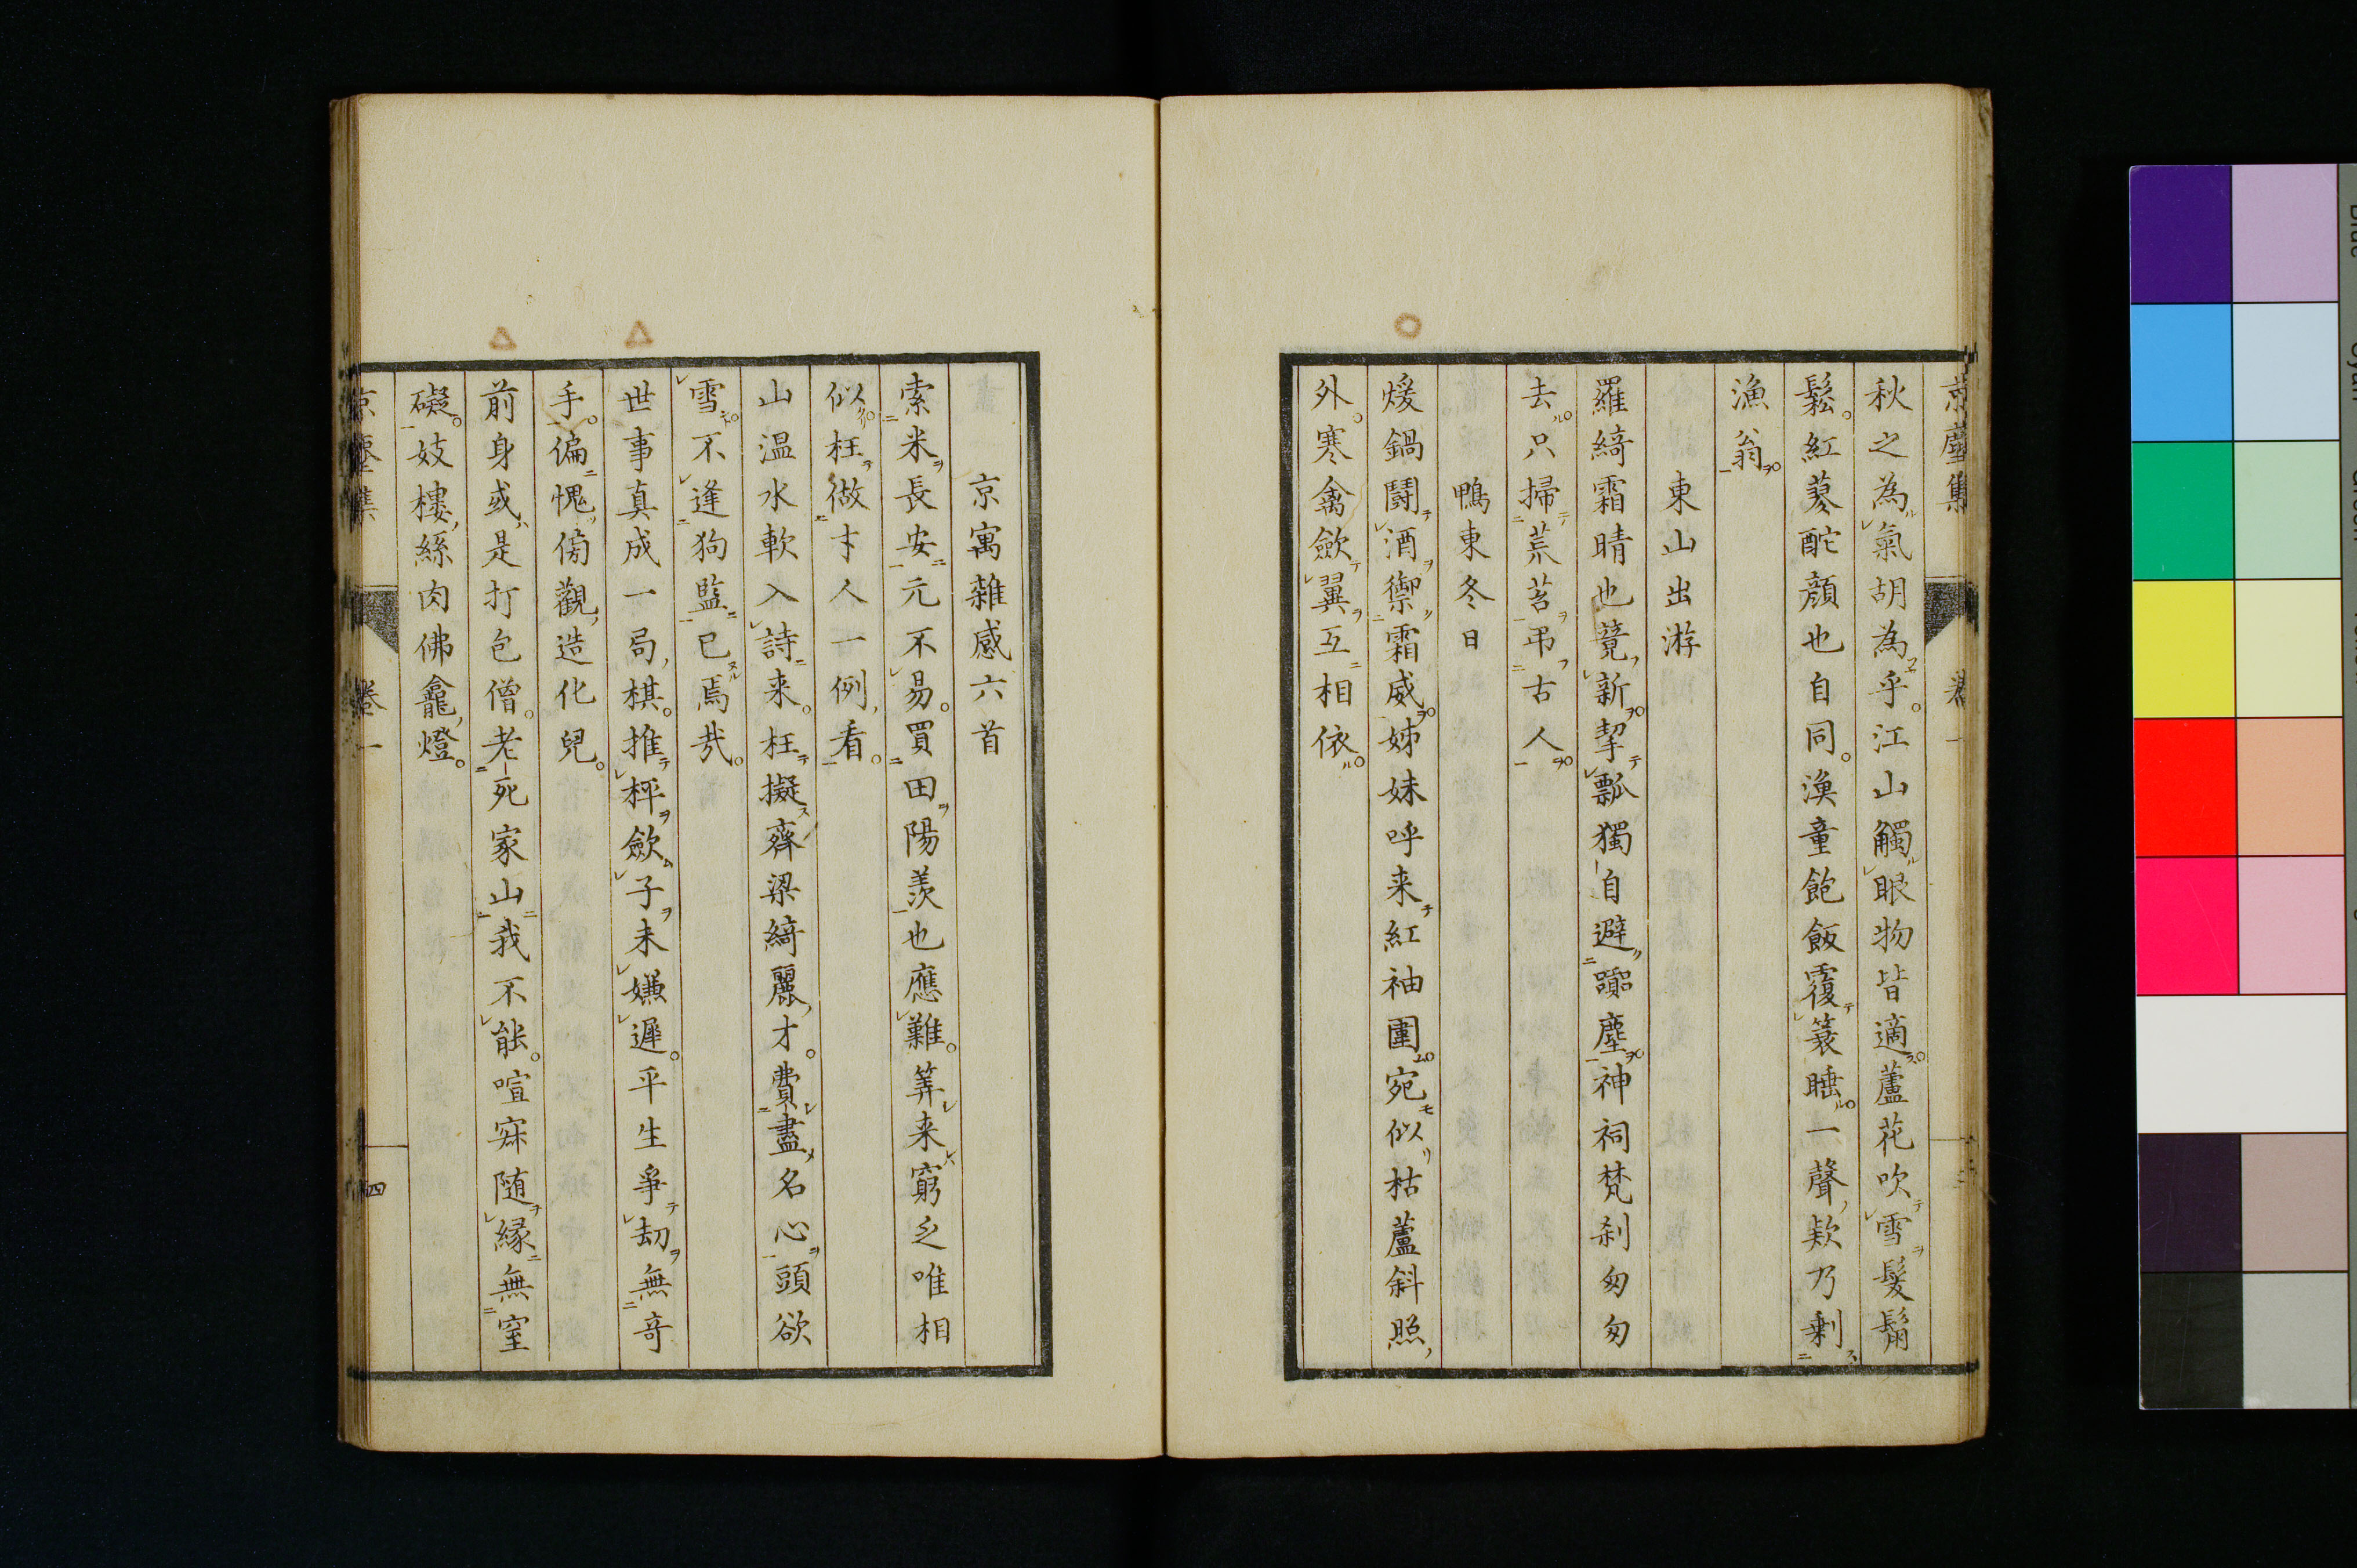 京塵集 卷一
秋之為氣胡為乎江山觸眼物皆適蘆花吹雪髮鬅
鬆紅蓼酡顔也自同漁童飽飯覆蓑睡一聲欵乃剩
漁翁
東山出游
羅綺霜晴也覓新挈瓢獨自避躁塵神祠梵刹匆匆
去只掃荒苔弔古人
鴨東冬日
煖鍋鬪酒禦霜威姊妹呼来紅袖圍宛似枯蘆斜照
外寒禽歛翼互相依
京寓雜感六首
索米長安元不易買田陽羨也應難筭来窮乏唯相
似枉做才人一例看
山温水軟入詩来枉擬齊梁綺麗才費盡名心頭欲
雪不逢狗監已焉哉
世事真成一局棋推枰歛子未嫌遲平生爭刧無奇
手偏愧傍觀造化兒
前身或是打包僧老死家山我不能喧寂随縁無窒
礙妓樓絲肉佛龕燈
京塵集 卷一 四